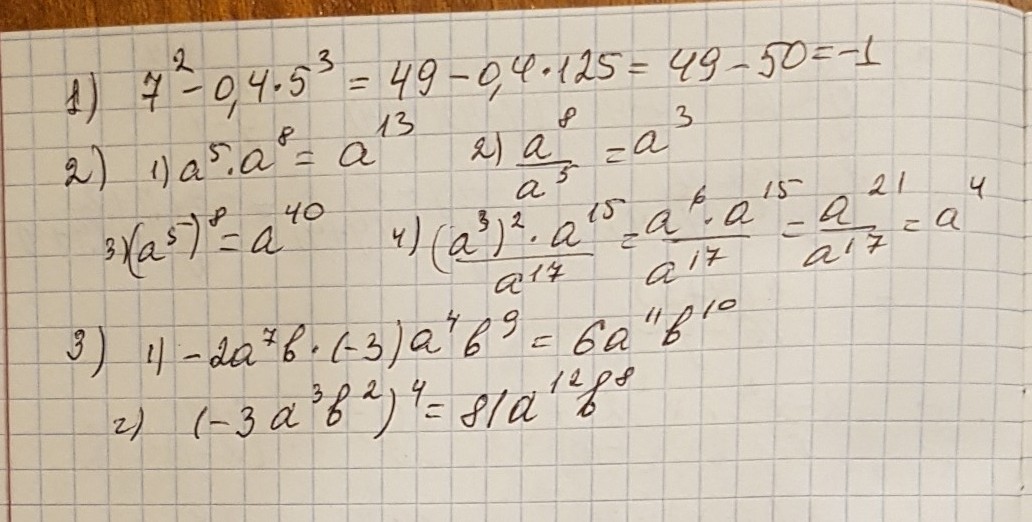 1) 7² - 0,4·5³ = 49 - 0,4·125 = 49 - 50 = -1
2) 1) a⁵·a⁸ = a¹³ 2) a⁸/a⁵ = a³
3) (a⁵)⁸ = a⁴⁰ 4) (a³)²·a¹⁵/a¹⁷ = a⁶·a¹⁵/a¹⁷ = a²¹/a¹⁷ = a⁴
3) 1) -2a⁷b·(-3)a⁴b⁹ = 6a¹¹b¹⁰
2) (-3a³b²)⁴ = 81a¹²b⁸